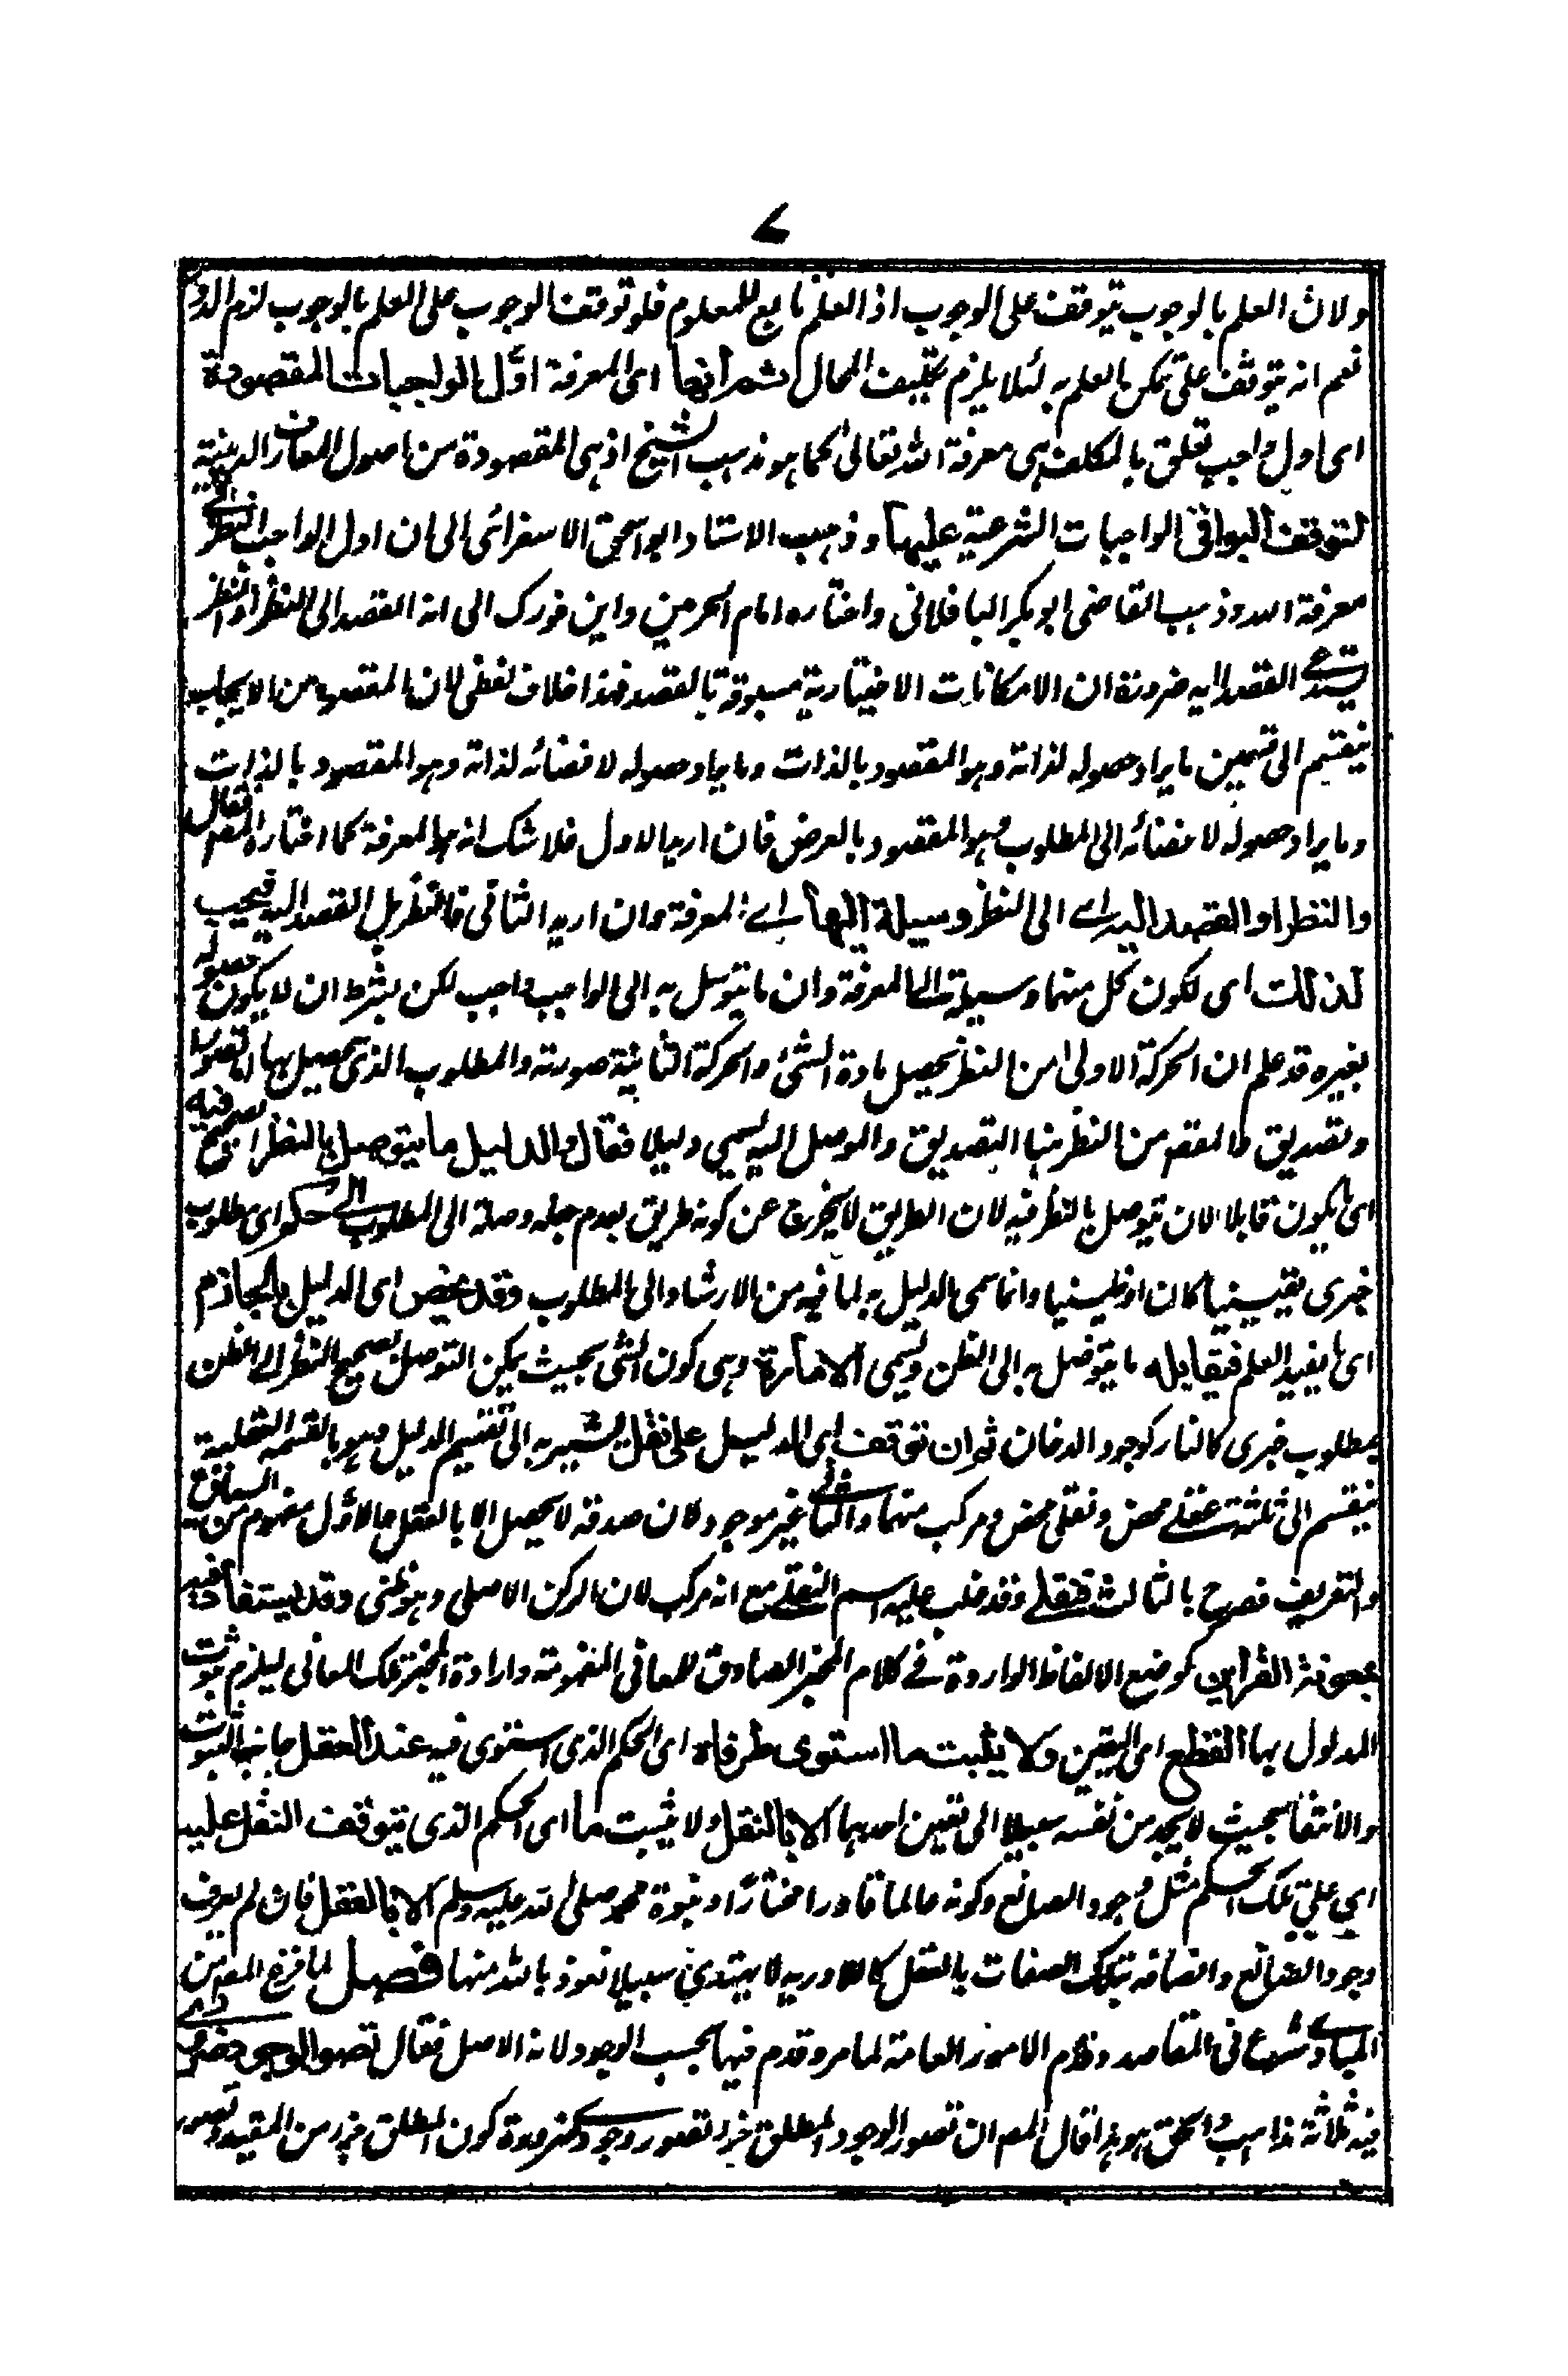 ٧
ولان العلم بالوجوب يتوقف على الوجوب اذ العلم تابع للمعلوم فلو توقف الوجوب على العلم بالوجوب لزم الدور
نعم انه يتوقف على تمكن العلم به لئلا يلزم تكليف المحال ثم انها اى المعرفة اول الواجبات المقصودة
اى اول واجب تعلق بالمكلف هى معرفة الله تعالى كما هو مذهب الشيخ اذ هى المقصودة من اصول المعارف الدينية
لتوقف البواقى الواجبات الشرعية عليها وذهب الاستاد ابو اسحق الاسفرائى الى ان اول الواجب النظر فى
معرفة الله وذهب القاضى ابو بكر الباقلانى واختاره امام الحرمين وابن فورك الى انه القصد الى النظر اذ النظر
يستدعى القصد اليه ضرورة ان الامكانات الاختيارية مسبوقة بالقصد فهذا خلاف لفظى لان المقصود من الايجاب
ينقسم الى قسمين ما يراد حصوله لذاته وهو المقصود بالذات وما يراد حصوله لافضائه لذاته وهو المقصود بالذات
وما يراد حصوله لافضائه الى المطلوب وهو المقصود بالعرض فان اريد الاول فلا شك انه هو المعرفة كما اختاره المصـ فقال
والنظر او القصد اليه اى الى النظر وسيلة اليها اى المعرفة وان اريد الثانى فالنظر بل القصد اليه فيجب
لذلك اى لكون كل منهما وسيلة الى المعرفة وان ما يتوسل به الى الواجب واجب لكن بشرط ان لا يكون حصوله
بغيره قد علم ان الحركة الاولى من النظر تحصل مادة الشئ والحركة الثانية صورته والمطلوب الذى يحصل بها اما تصور
وتصديق والمقصـ من النظر منها التصديق والموصل اليه يسمى دليلا فقال والدليل ما يتوصل بالنظر الصحيح فيه
اى يكون قابلا لان يتوصل بالنظر فيه لان الطريق لا يخرج عن كونه طريق بعدم جعله وصلة الى المطلوب الى حكم اى مطلوب
خبرى يقينيا كان او ظنينيا وانما سمى الدليل به لما فيه من الارشاد الى المطلوب وقد يخص اى الدليل بالجازم
اى ما يفيد العلم فيقابله ما يتوصل به الى الظن ويسمى الامارة وهى كون الشئ بحيث يمكن التوصل بصحيح النظر الى الظن
بمطلوب خبرى كالنار كوجود الدخان ثم ان توقف اى الدليل على نقل يشير به الى تقسيم الدليل وهو بالقسمة العقلية
ينقسم الى ثلثة عقلى محض ونقلى محض ومركب منهما والثانى غير موجود لان صدقه لا يحصل الا بالعقل والاول مفهوم من السياق
والتعريف فصرح بالثالث فنقلى وقد غلب عليه اسم النقلى مع انه مركب لان الركن الاصلى وهو ظنى وقد يستفاد فيه
بمعونة القرائن كوضع الالفاظ الواردة فى كلام المخبر الصادق للمعانى المفهومة وارادة المخبر تلك المعانى ليلزم ثبوت
المدلول بها القطع اى اليقين ولا يثبت ما استوى طرفاه اى الحكم الذى استوى فيه عند العقل جانب الثبوت
والانتفاء بحيث لا يجد من نفسه سبيلا الى تعين احدهما الا بالنقل ولا يثبت ما اى الحكم الذى يتوقف النقل عليه
اى على تلك الحكم مثل وجود الصانع وكونه عالما قادرا مختارا ونبوة محمد صلى الله عليه وسلم الا بالعقل فان لم يعرف
وجود الصانع واتصافه بتلك الصفات بالعقل كاللاادريه لا يهتدى سبيلا نعوذ بالله منها فصل لما فرغ المصـ من
المبادى شرع فى المقاصد وقدم الامور العامة لما مر وقدم فيها بحسب الوجود لانه الاصل فقال تصور الوجود ضرورى
فيه ثلاثة مذاهب والحق هو هذا قال المصـ ان تصور الوجود المطلق جزء تصور وجودى ضرورة كون المطلق جزء من المقيد وتصور